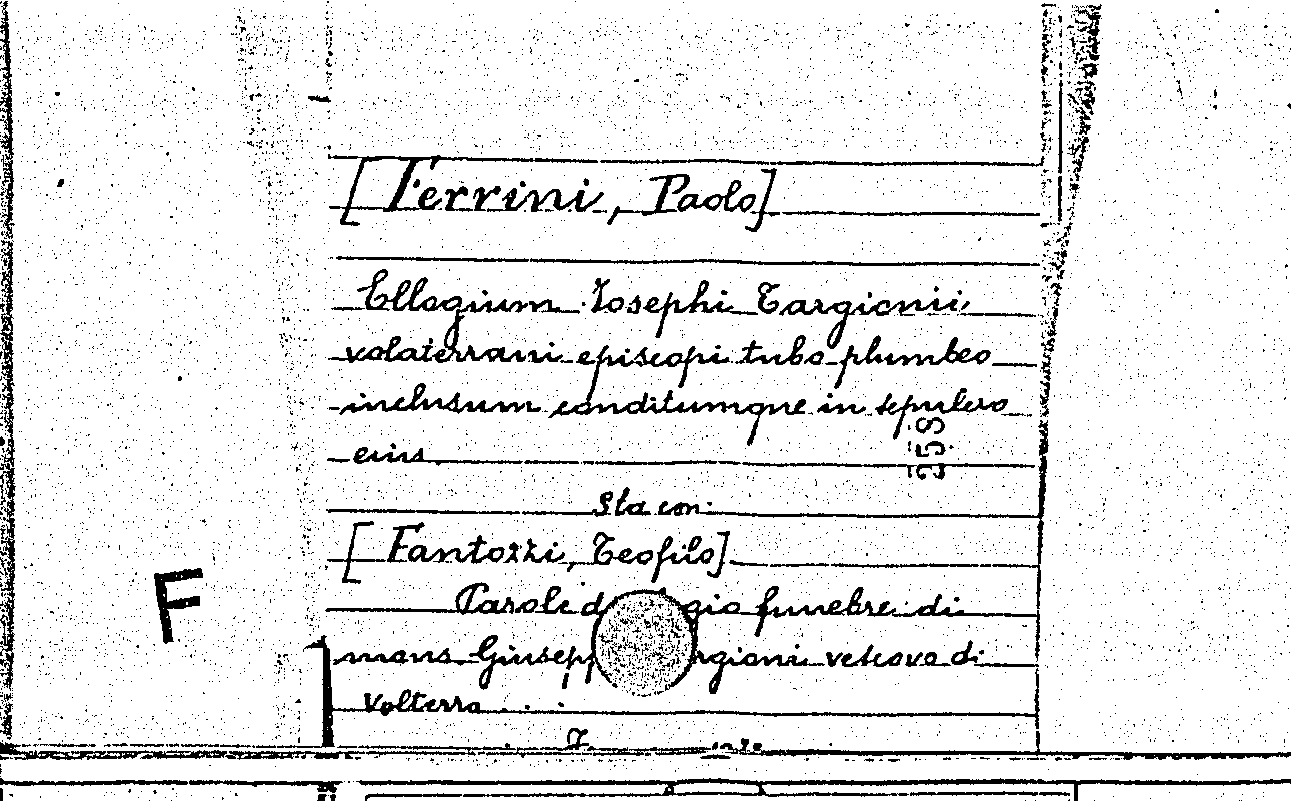 [Ferrini, Paolo]
Ellogium Iosephi Targionii
volaterrani episcopi tubo plumbeo
inclusum conditumque in sepulcro
eius
258
Sta con:
[Fantozzi, Teofilo]
Parole funebre di
mons. Giuseppe vescovo di
Volterra . . .
F